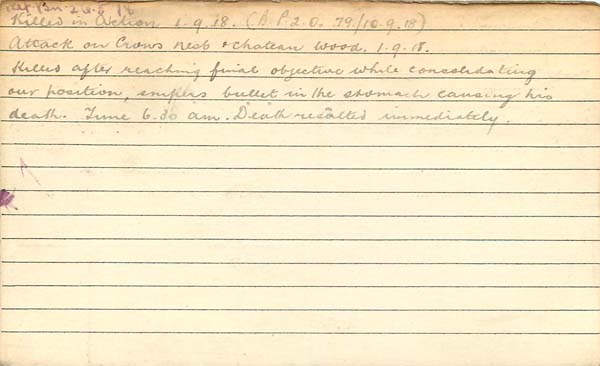 Killed in Action 1-9.18. (B.P.2.O. 79/10.9.18)
Attack on Crows nest & Chateau Wood. 1.9.18.
Killed after reaching final objective while consolidating
our position, snipers bullet in the stomach causing his
death. Time 6.30 am. Death resulted immediately.